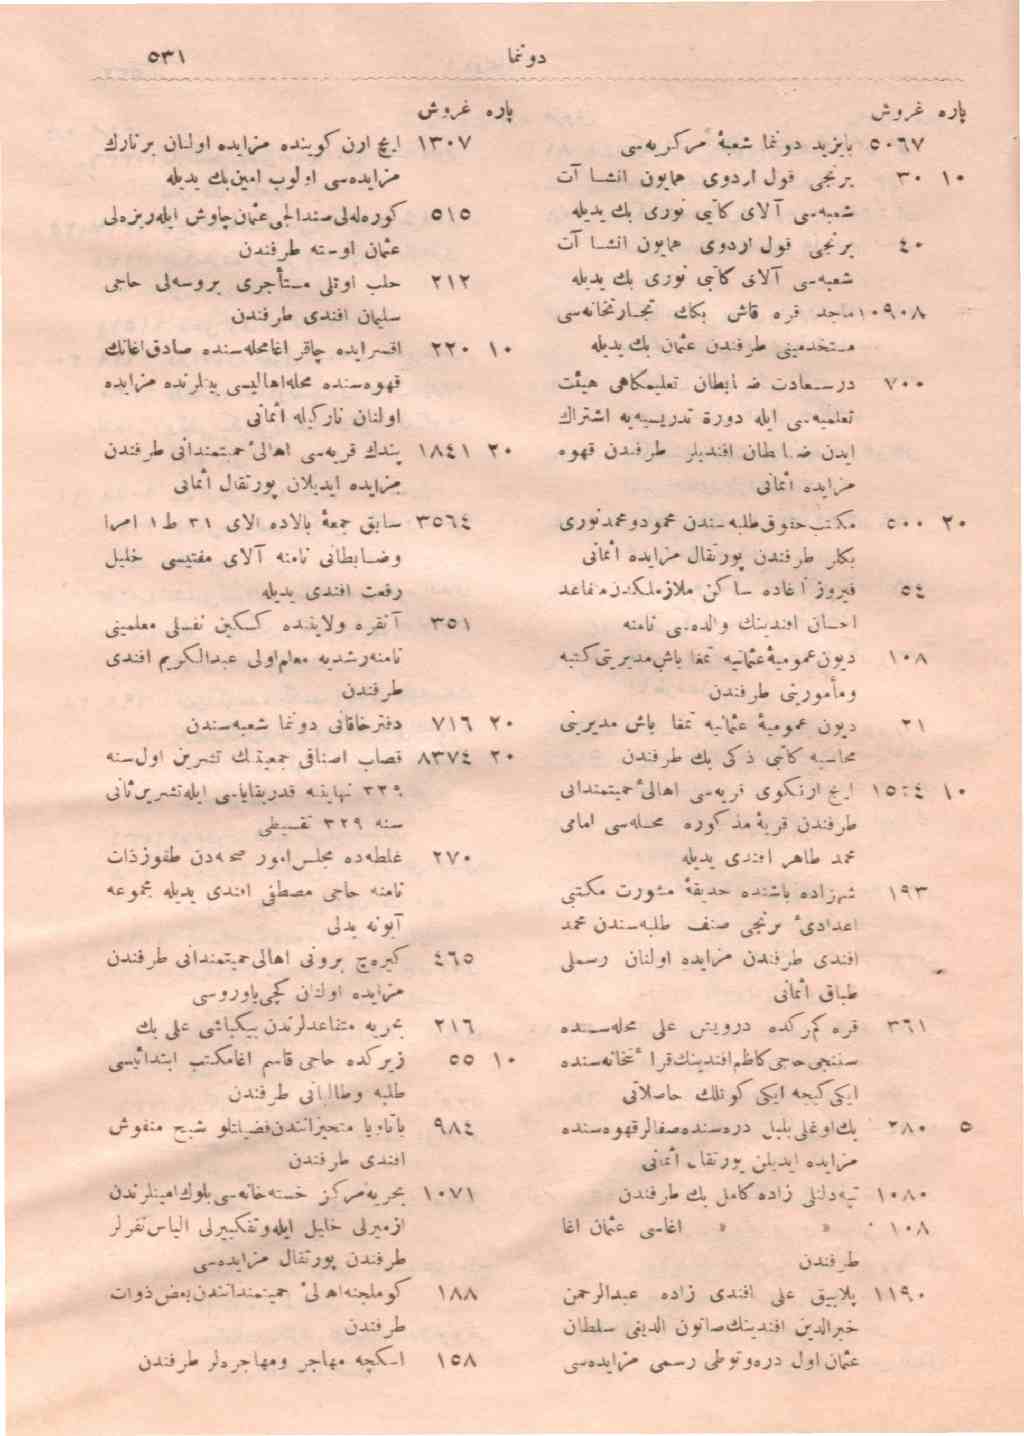 دوننما
٥٣١
پاره غروش
٥٠٦٧ بايزيد دوننما شعبهٔ مركزيه‌سى
١٠ ٣٠ برنجى قول اردوى همايون انشاآت
شعبه‌سى آلاى كاتبى نورى بك يديله
٤٠ برنجى قول اردوى همايون انشاآت
شعبه‌سى آلاى كاتبى نورى بك يديله
١٠٩٠٨ ماجد قره قاش بكك تجارتخانه‌سى
مستخدمينى طرفندن عثمان بك يديله
٧٠٠ درسعادت ضابطان تعليمكاهى هيئت
تعلميه‌سى ايله دورهٔ تدريسيه‌يه اشتراك
ايدن ضابطان افنديلر طرفندن قهوه
مزايده اثمانى
٢٠ ٥٠٠ مكتب حقوق طلبه‌سندن محمود و محمد نورى
بكلر طرفندن پورتقال مزايده اثمانى
٥٤ فيروز آغاده ساكن ملازملكدن متقاعد
احسان افندينك والده‌سى نامنه
١٠٨ ديون عموميهٔ عثمانيه تمغا باش مديريتى كتبه
ومأمورينى طرفندن
٢١ ديون عموميهٔ عثمانيه تمغا باش مديريتى
محاسبه كاتبى ذكى بك طرفندن
١٠ ارنكوى قريه‌سى اهالىٔ حميتمندانى
طرفندن قريهٔ مذكوره محله‌سى امامى
محمد طاهر افندى يديله
١٩٣ شهزاده باشنده حديقهٔ مشورت مكتبى
اعدادىٔ برنجى صنف طلبه‌سندن محمد
افندى طرفندن مزايده اولنان رسملى
طباق اثمانى
٣٦١ قره كمركده درويش على محله‌سنده
سننجى حاجى كاظم افندينك قرائتخانه‌سنده
ايكى كيجه ايكى كونلك حاصلاتى
٥ ٢٨٠ بك اوغلى بلبل دره‌سنده صفالر قهوه‌سنده
مزايده ايديلن پورتقال اثمانى
١٠٨٠ تپه‌دلنلى زاده كامل بك طرفندن
١٠٨ » » » اغاسى عثمان اغا
طرفندن
١١٩٠ پلابيق على افندى زاده عبدالرحمن
خيرالدين افندينك صاتون الديغى سلطان
عثمان اول دره‌وتوطى رسمى مزايده‌سى
پاره غروش
١٣٠٧ ايچ ارن كوينده مزايده اولنان بر نارك
مزايده‌سى اولوب امين بك يديله
٥١٥ كوره‌له‌لى صندالجى عثمان چاوش ايله ريزه‌لى
عثمان اوسته طرفندن
٢١٢ حلب اوتلى مستأجرى بروسه‌لى حاجى
سليمان افندى طرفندن
١٠ ٢٢٠ اقسرايده چاقر اغا محله‌سنده صادق اغانك
قهوه‌سنده محله اهاليسى بينلرنده مزايده
اولنان ناركيله اثمانى
٢٠ ١٨٤١ پندك قريه‌سى اهالىٔ حميتمندانى طرفندن
مزايده ايديلان پورتقال اثمانى
٣٥٦٤ سابق جمعهٔ بالاده الاى ٣١ ط ١ امرا
وضابطانى نامنه آلاى مفتيسى خليل
رفعت افندى يديله
٣٥١ آنقره ولايتنده كسكين نفسلى معلمينى
نامنه رشديه معلم اولى عبدالكريم افندى
طرفندن
٢٠ ٧١٦ دفترخاقانى دوننما شعبه‌سندن
٢٠ ٨٣٧٤ قصاب اصنافى جمعيتنك تشرين اول سنه
٣٢٩ نهايتنه قدر بقاياسى ايله تشرين ثانى
سنه ٣٢٩ تقسيطى
٢٧٠ غلطه‌ده مجلس امور صحيه‌دن طقوز ذات
نامنه حاجى مصطفى افندى يديله مجموعه
آبونه بدلى
٤٦٥ كيره‌ج برونى اهالى حميتمندانى طرفندن
مزايده اولنان كچى ياوروسى
٢١٦ بحريه متقاعدلرندن بيكباشى على بك
١٠ ٥٥ زيركده حاجى قاسم اغا مكتب ابتدائيسى
طلبه وطالباتى طرفندن
٩٨٤ باتاويا متحيزانندن فضيلتلو شيخ منقوش
افندى طرفندن
١٠٧١ بحريه مركز خسته‌خانه‌سى بلوك امينلرندن
ازميرلى خليل ايله وتفكبيرلى الياس نفرلر
طرفندن پورتقال مزايده‌سى
١٨٨ كوملجنه اهالىٔ حميتمندانندن بعض ذوات
طرفندن
١٥٨ اسكچه مهاجر ومهاجره‌لر طرفندن